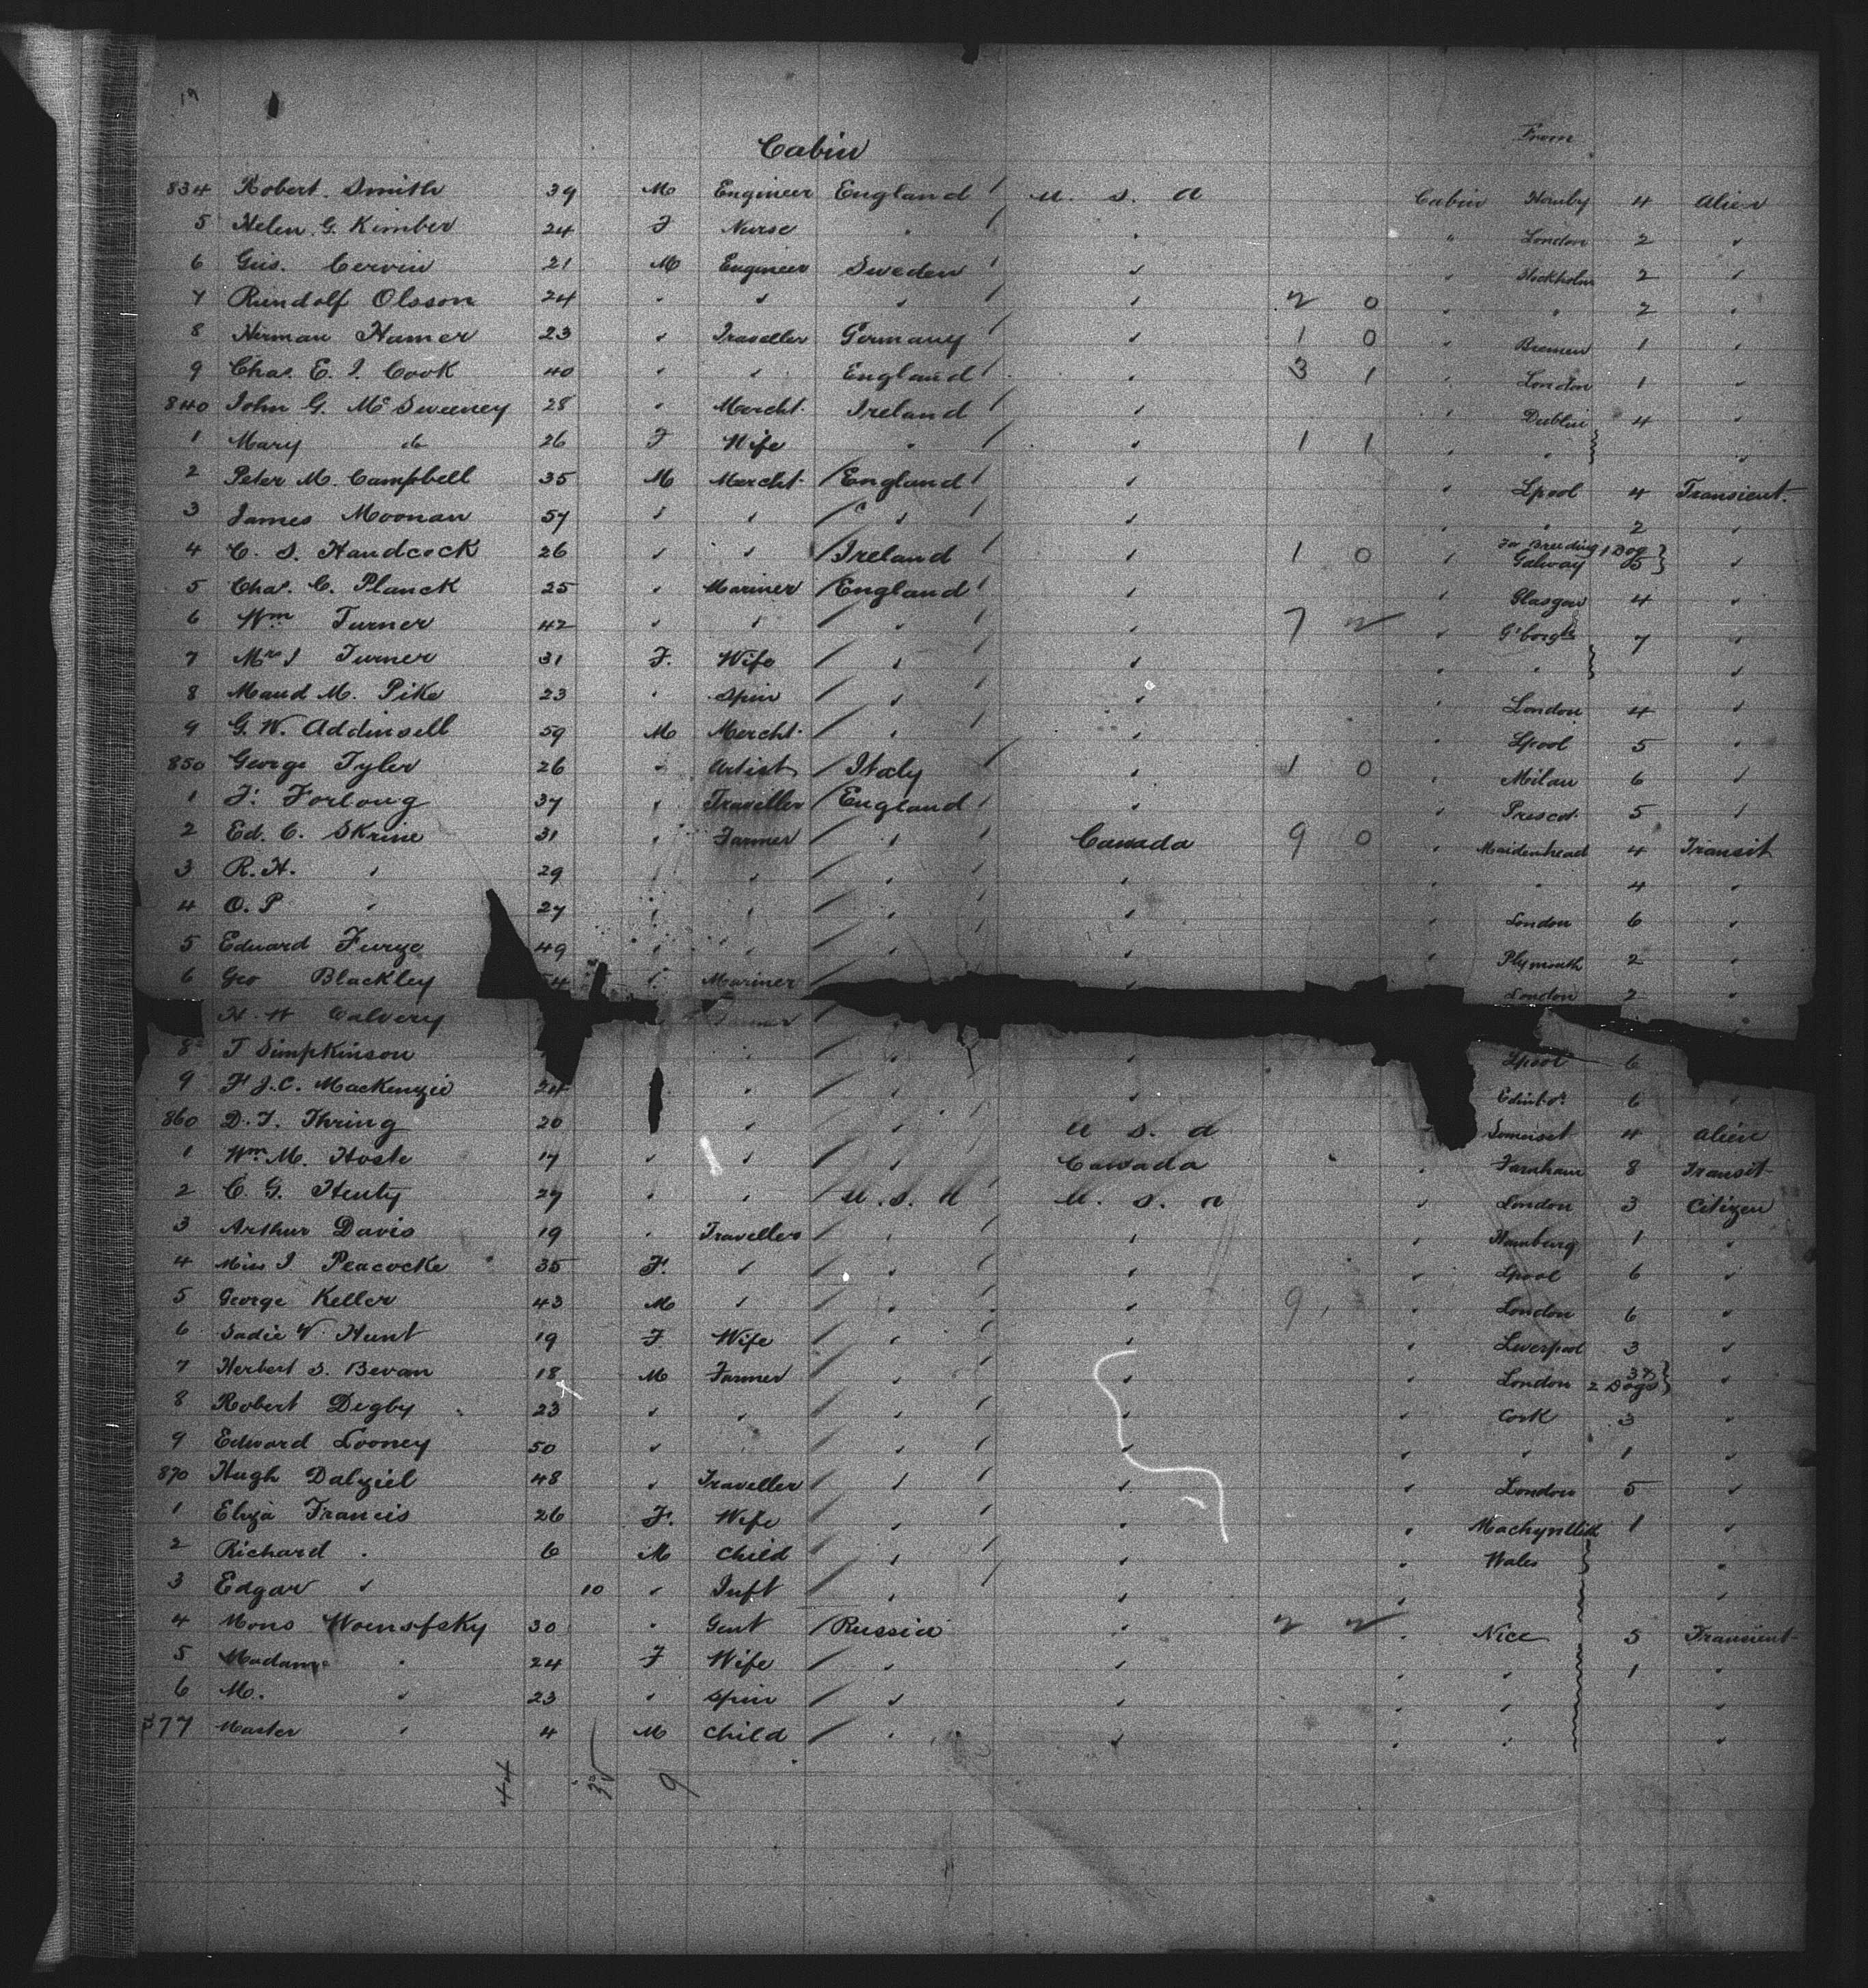 19
Cabin From
834 Robert. Smith 39 M Engineer England / U. S. A Cabin Hornby 4 Alien
5 Helen. G. Kimber 24 F Nurse " / " " London 2 "
6 Gus. Cervin 21 M Engineer Sweden / " Stockholm 2 "
7 Rundolf Olsson 24 " " " / " 2 0 " " 2 "
8 Herman Hamer 23 " Traveller Germany / " 1 0 " Bremen 1 "
9 Chas. E. J. Cook 40 " " England / " 3 1 " London 1 "
840 John G. McSweeney 28 " Mercht. Ireland / " " Dublin 4 "
1 Mary do 26 F Wife " / " 1 1 " " "
2 Peter M. Campbell 35 M Mercht. / England / " " Lpool 4 Transient.
3 James Moonan 57 " " / " " " " 2 "
4 C. S. Handcock 26 " " / Ireland / " 1 0 " For Breeding 1 Dog Galway 5 } "
5 Chas. C. Planck 25 " Mariner / England / " " Glasgow 4 "
6 Wm Turner 42 " " / " / " 7 2 " G'borgh 7 "
7 Mrs J Turner 31 F. Wife / " / " " " "
8 Maud M. Pike 23 " Spin / " / " " London 4 "
9 G. W. Addinsell 59 M Mercht. / " / " " Lpool 5 "
850 George Tyler 26 " Artist / Italy / " 1 0 " Milan 6 "
1 F. Forlong 37 " Traveller / England / " " Prescot 5 "
2 Ed. C. Skrine 31 " Farmer / " / Canada 9 0 " Maidenhead 4 Transit
3 R. H. " 29 " " / " / " " " 4 "
4 O. P " 27 " " / " / " " London 6 "
5 Edward Furze 49 " " / " / " " Plymouth 2 "
6 Geo Blackley 4 " Mariner / " London 2 "
H. H Calvery Farmer /
8 T Simpkinson " / " / " Lpool 6
9 F. J. C. Mackenzie 24 " / " / " Edinbor 6 "
860 D. T. Thring 20 " / " / U S. A Somerset 4 Alien
1 Wm. M. Hoste 17 " " / " / Canada " Farnham 8 Transit
2 C. G. Henty 27 " " U. S. A U. S. A " London 3 Citizen
3 Arthur Davis 19 " Traveller / " / " " Hamburg 1 "
4 Miss J. Peacocke 35 F. " / " / " " Lpool 6 "
5 George Keller 43 M " / " " 9 " London 6 "
6 Sadie W. Hunt 19 F. Wife / " / " " Liverpool 3 "
7 Herbert S. Bevan 18 M Farmer / " / " London 3 & 2 Dogs } "
8 Robert Digby 23 " " / " / " " Cork 3 "
9 Edward Looney 50 " / " / " " " 1 "
870 Hugh Dalziel 48 " Traveller / " / " " London 5 "
1 Eliza Francis 26 F. Wife / " / " " Machynlleth 1 "
2 Richard " 6 M Child / " / " " Wales "
3 Edgar " 10 " Inft / " / " " "
4 Mons 30 " Gent / Russia " 2 2 " Nice 5 Transient
5 Madame " 24 F Wife / " " " " 1 "
6 M. " 23 " Spin / " " " " "
877 Master " 4 M Child / " " " " "
44 35 9